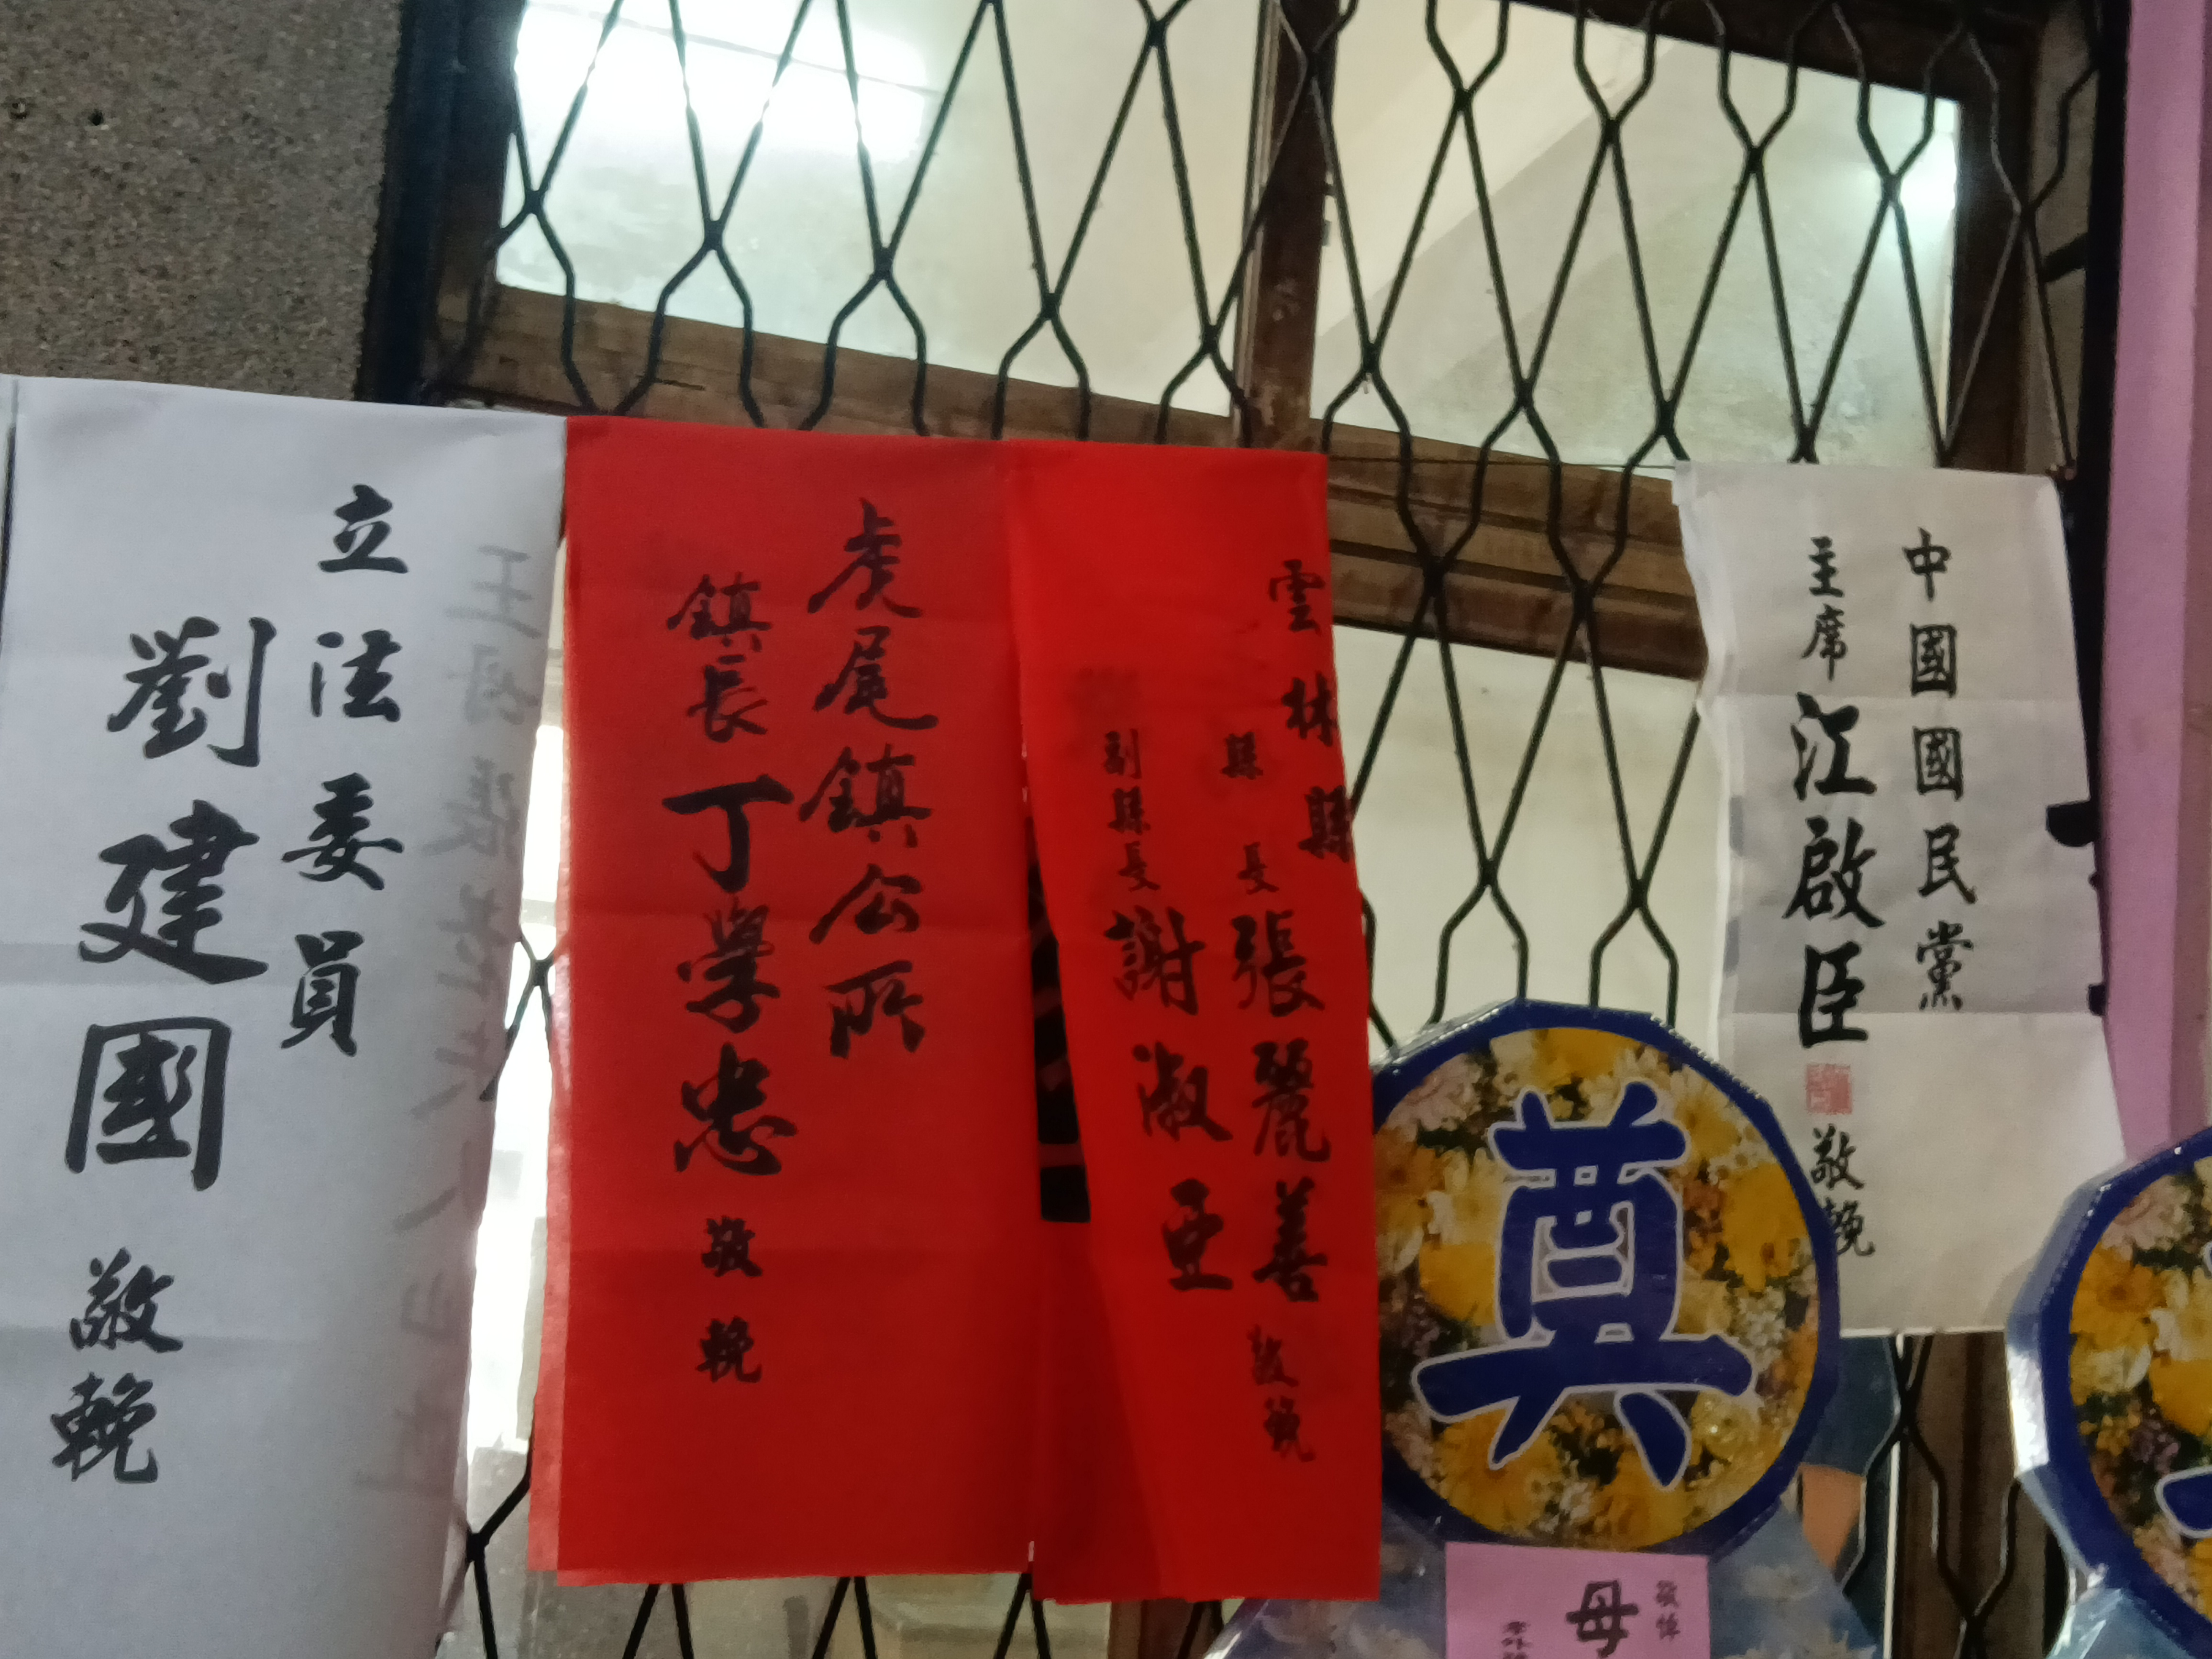 中國國民黨
主席 江啟臣 敬輓
雲林縣
縣長 張麗善 敬輓
副縣長 謝淑亞
虎尾鎮公所
鎮長 丁學忠 敬輓
立法委員
劉建國 敬輓
奠
敬悼
母